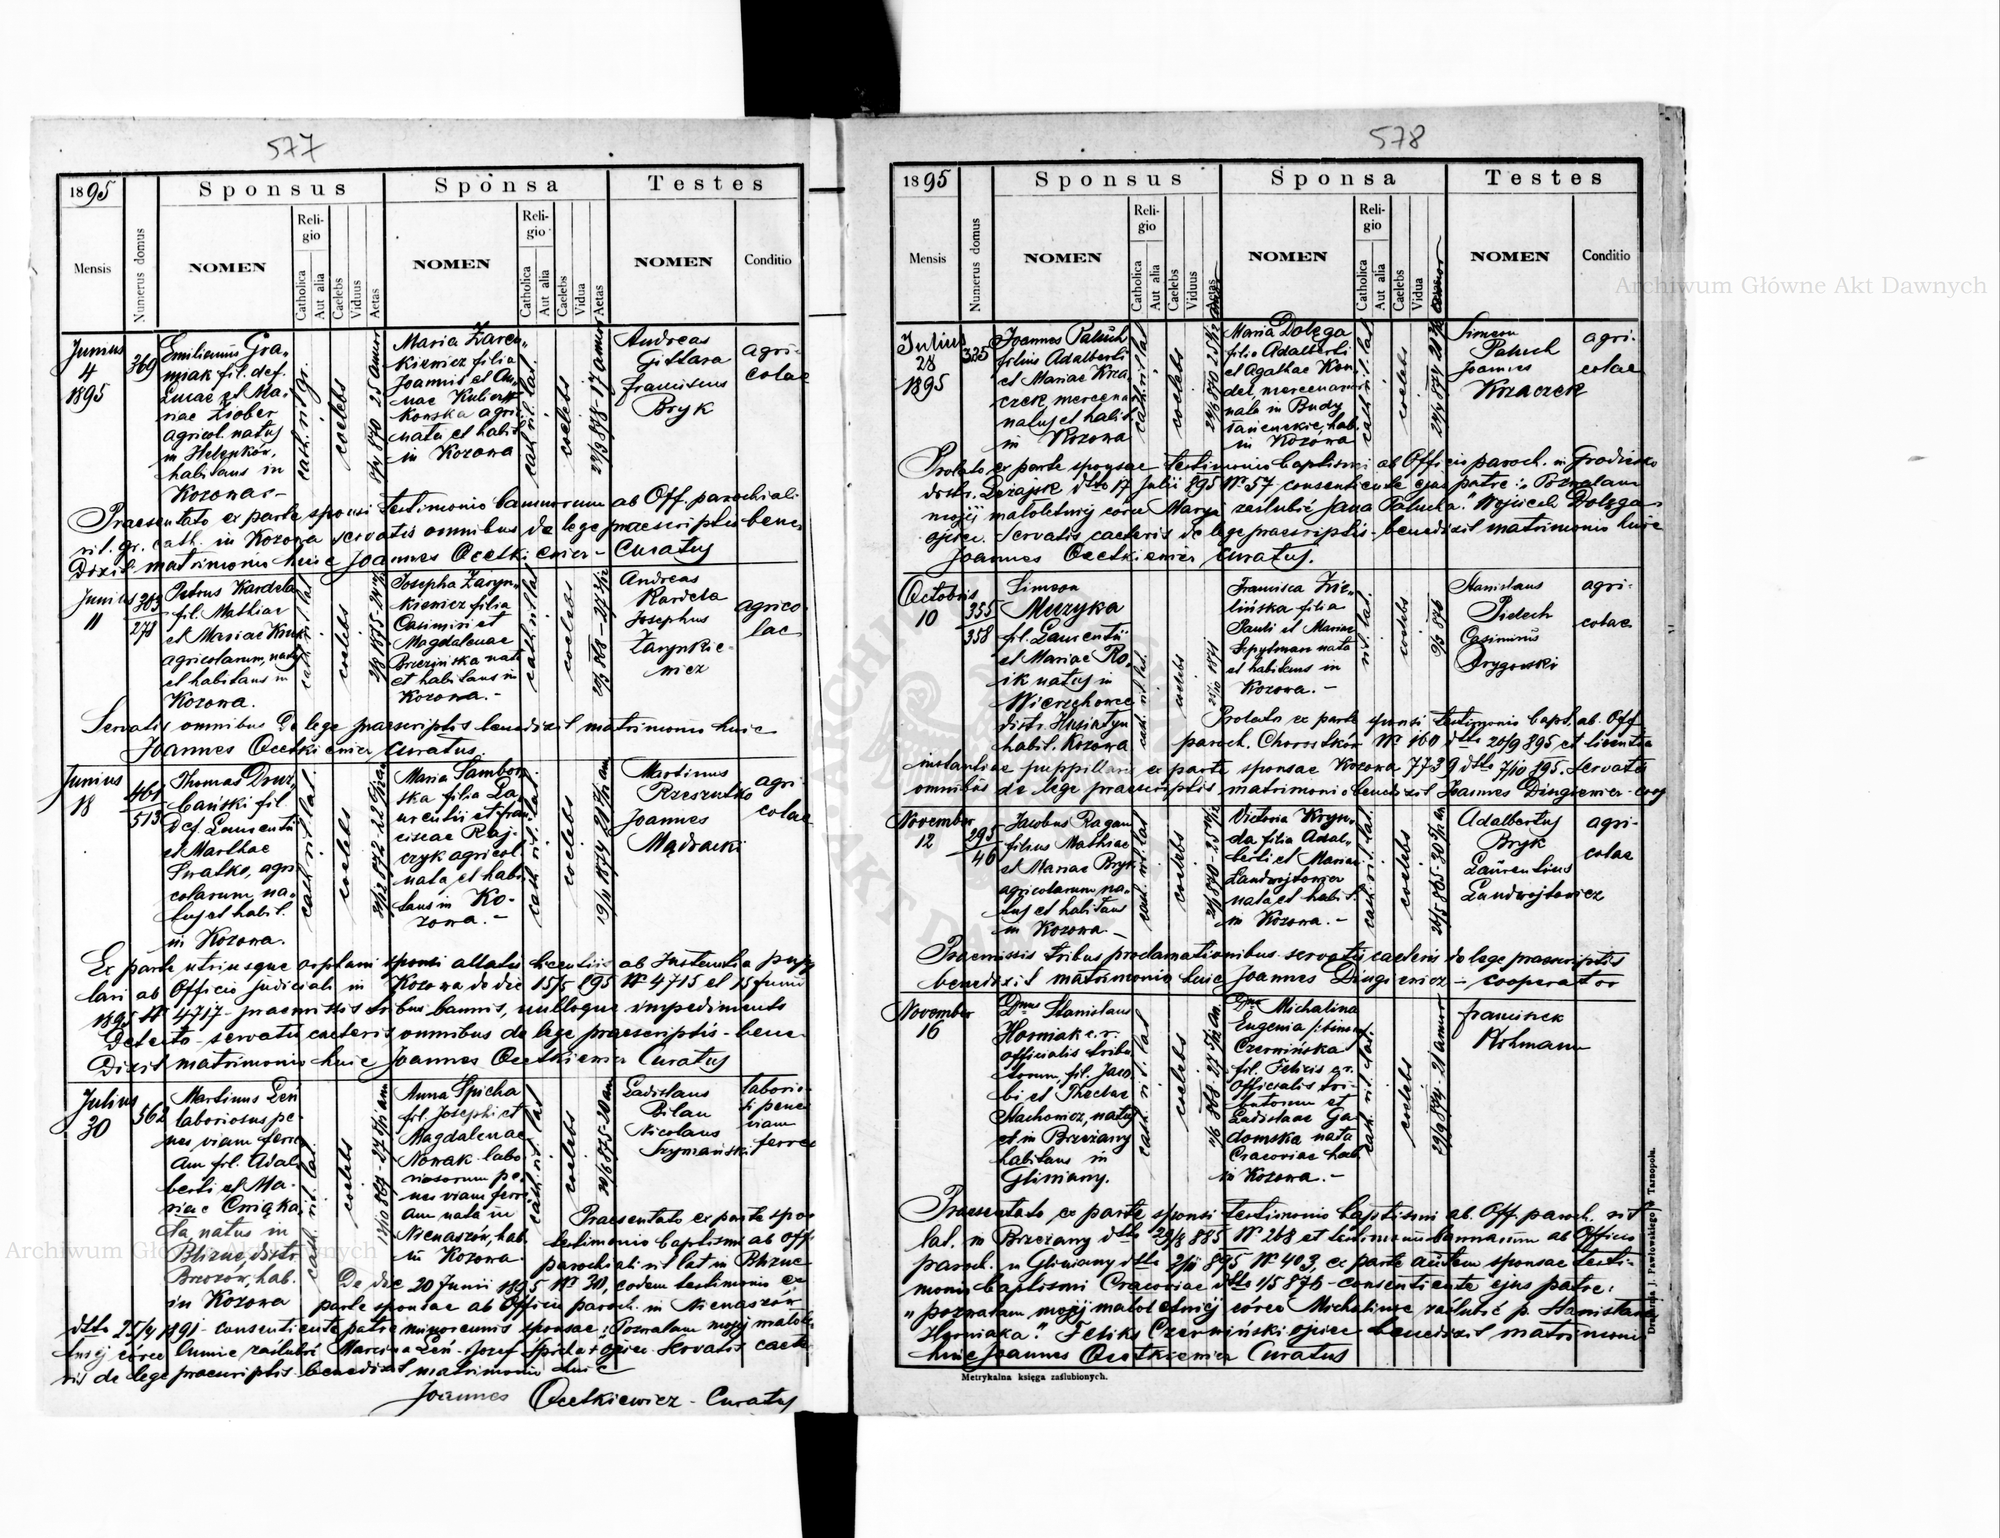 577
1895
Sponsus
Sponsa
Testes
Mensis
Numerus domus
NOMEN
Religio
Catholica
Aut alia
Caelebs
Viduus
Aetas
NOMEN
Religio
Catholica
Aut alia
Caelebs
Vidua
Aetas
NOMEN
Conditio
Junius
4
1895
369
Emilianus Gra„
niak fil. def.
Lucae et Ma„
riae Ziober
agricol. natus
in Helenków,
habitans in
Kozowa.-
cath. rit. gr.
coelebs
Maria Zarez„
kiewicz filia
Joannis et An„
nae
agric.
nata et habit.
in Kozowa
cath. rit. lat.
coelebs
Andreas
Gittara
Franciscus
Bryk
agri-
colae
Praesentato ex parte sponsi testimonio bannorum ab Off. parochiali
rit. gr. cath. in Kozowa servatis omnibus de lege praescriptis bene
dixit matrimonio huic Joannes Ocetkiewicz - Curatus
Junius
11
303
278
Petrus Kardela
fil. Mathiae
et Mariae Kruk
agricolarum, natus
et habitans in
Kozowa.
cath. rit. lat.
coelebs
Josepha Zaryn„
kiewicz filia
Casimiri et
Magdalenae
Brzezińska nata
et habitans in
Kozowa.-
cath. rit. lat.
coelebs
Andreas
Kardela
Josephus
Zarynkie-
wicz
agrico
lae
Servatis omnibus de lege praescriptis benedixit matrimonio huic
Joannes Ocetkiewicz Curatus.
Junius
18
461
513
Thomas Druz„
bański fil.
def. Laurentii
et Marthae
Swatko, agri
colarum na„
tus et habit.
in Kozowa.
cath. rit. lat.
coelebs
Maria Sambor„
ska filia La„
urentii et Fran
ciscae Raj-
czyk agricol.
nata et habi
tans in Ko-
zowa.-
cath. rit. lat.
coelebs
Martinus
Rzeszutko
Joannes
Mądracki
agri-
colae
Ex parte utriusque orphani sponsi allatis licentiis ab Instantia pupp
lari ab Officio judiciali in Kozowa de die 15/5 895 № 4715 et 15 Junii
1895 № 4717 - praemissis tribus bannis, nulloque impedimento
detecto - servatis caeteris omnibus de lege praescriptis - bene
dixit matrimonio huic Joannes Ocetkiewicz Curatus
Julius
30
562
Martinus Leń
laboriosus pe-
nes viam ferre
am fil. Adal
berti et Ma-
riae Cwiąka
ła, natus in
Blizne, distr.
Brzozów, hab.
in Kozowa
cath. rit. lat.
coelebs
Anna Spicha
fil. Josephi et
Magdalenae
Nowak labo
riosorum pe-
nes viam ferre
am nata in
Nienaszów, hab.
in Kozowa.
cath. rit. lat
coelebs
Ladislaus
Bilan
Nicolaus
Szymański
laborio-
si penes
viam
ferrea
Praesentato ex parte spon
testimonio baptismi ab Off.
parochiali rit. lat in Blizne
De die 20 Junii 1895 № 30, eodem testimonio ex
parte sponsae ab Officio paroch. in Nienaszów
dtto 25/4 1891 - consentiente patre minorennis sponsae: "Pozwalam mojej małole
tniej córce Annie zaślubić Marcina Leń - Józef Spicha ojciec. Servatis caete
ris de lege praescriptis benedixit matrimonio huic
Joannes Ocetkiewicz - Curatus
578
1895
Sponsus
Sponsa
Testes
Mensis
Numerus domus
NOMEN
Religio
Catholica
Aut alia
Caelebs
Viduus
Aetas
NOMEN
Religio
Catholica
Aut alia
Caelebs
Vidua
NOMEN
Conditio
Julius
28
1895
325
Joannes Paluch
filius Adalberti
et Mariae Krza„
czek, mercena
natus et habit.
in Kozowa
cath. rit. lat
coelebs
Maria Dolęga
filia Adalberti
et Agathae Kon
del mercenar
nata in Budy
łańcuckie, hab.
in Kozowa
cath. rit. lat
coelebs
Simeon
Paluch
Joannes
Krzaczek
agri-
colae
Prolato ex parte sponsae testimonio baptismi ab Officio paroch. in Grodzisko
distr. Leżajsk dtto 17 Julii 895 № 57 consentiente ejus patre: "Pozwalam
mojej małoletniej córce Maryi zaślubić Jana Palucha." Wojciech Dolęga
ojciec. Servatis caeteris de lege praescriptis - benedixit matrimonio huic
Joannes Ocetkiewicz Curatus.
Octobris
10
355
358
Simeon
Muzyka
fil. Laurentii
et Mariae Ro„
ik natus in
Wierzchowce
distr. Husiatyn
habit. Kozowa
cath. rit. lat.
coelebs
Francisca Zie„
lińska filia
Pauli et Mariae
Szpytman nata
et habitans in
Kozowa.-
rit. lat.
coelebs
9/3 876
Stanislaus
Pidech
Casimirus
Drygowski
agri-
colae
Prolato ex parte sponsi testimonio bapt. ab. Off
paroch. Chorostków № 160 dtto 26/9 895 et licentia
instantiae puppillaris ex parte sponsae Kozowa 7739 dtto 7/10 895. Servatis
omnibus de lege praescriptis matrimonio benedixit Joannes Dingiewicz - coop
November
12
295
46
Jacobus Ragan
filius Mathiae
et Mariae Bryk
agricolarum na„
tus et habitans
in Kozowa.-
cath. rit. lat
coelebs
Victoria Kryn„
da filia Adal„
berti et Mariae
Landwojtowicz
nata et habit.
in Kozowa.-
cath. rit. lat.
coelebs
Adalbertus
Bryk
Laurentius
Landwojtowicz
agri-
colae
Praemissis tribus proclamationibus servatis caeteris de lege praescriptis
benedixit matrimonio huic Joannes Dingiewicz - cooperator
November
16
Dnus Stanislaus
Horniak c. r.
officialis tribu
torum, fil. Jaco
bi et Theclae
Stachowicz, natus
et in Brzeżany
habitans in
Gliniany.
cath. rit. lat
coelebs
Dna Michalina
Eugenia
Czerwińska
fil. Felicis c.r.
officialis tri-
butorum et
Ladislae Ga
domska nata
Cracoviae hab.
in Kozowa.-
cath. rit. lat.
coelebs
29/9 874 - 21 annor
Franciszek
Hohmann
Praesentato ex parte sponsi testimonio baptismi ab. Off. paroch. rit
lat. in Brzeżany dtto 29/8 885 № 268 et testimonio bannorum ab Officio
paroch. in Gliniany dtto 2/11 895 № 403, ex parte autem sponsae testi-
monio baptismi Cracoviae dtto 1/5 876 - consentiente ejus patre:
„pozwalam mojej małoletniej córce Michalinie zaślubić p. Stanisława
Horniaka." Feliks Czerwiński ojciec - benedixit matrimonio
huic Joannes Ocetkiewicz Curatus
Metrykalna księga zaślubionych.
Drukarnia J. Pawłowskiego w Tarnopolu.
Archiwum Główne Akt Dawnych
Archiwum Główne Akt Dawnych